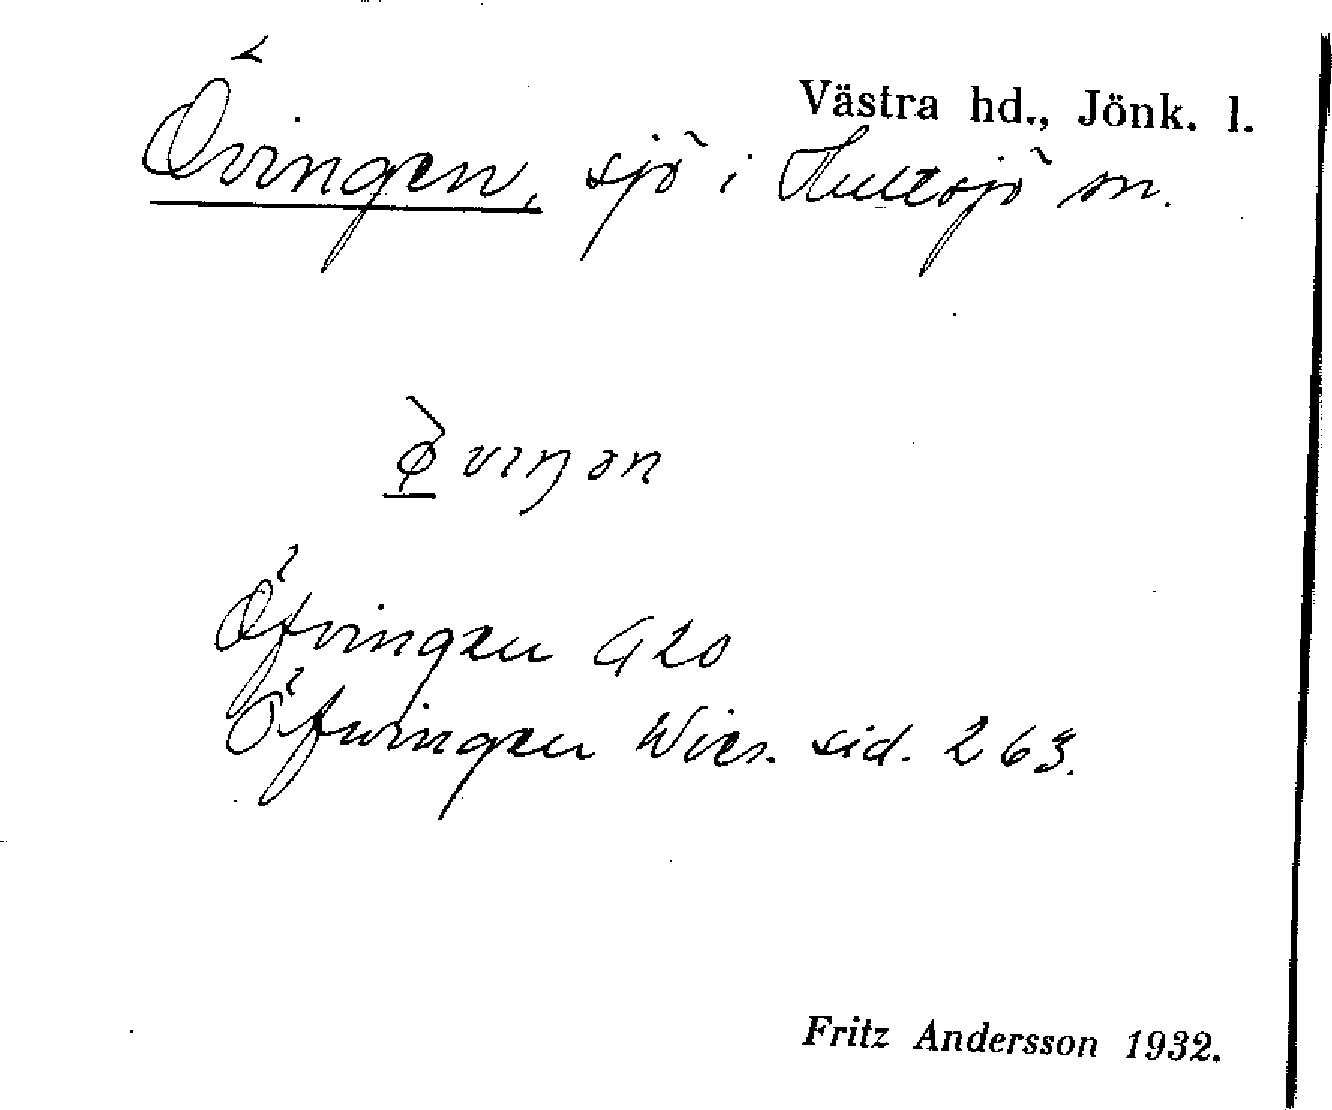 Västra hd., Jönk. l.
Övingen, sjö i Hultsjö sn.
Öfvingen G20
Öfwingen Wies. sid. 263.
Fritz Andersson 1932.